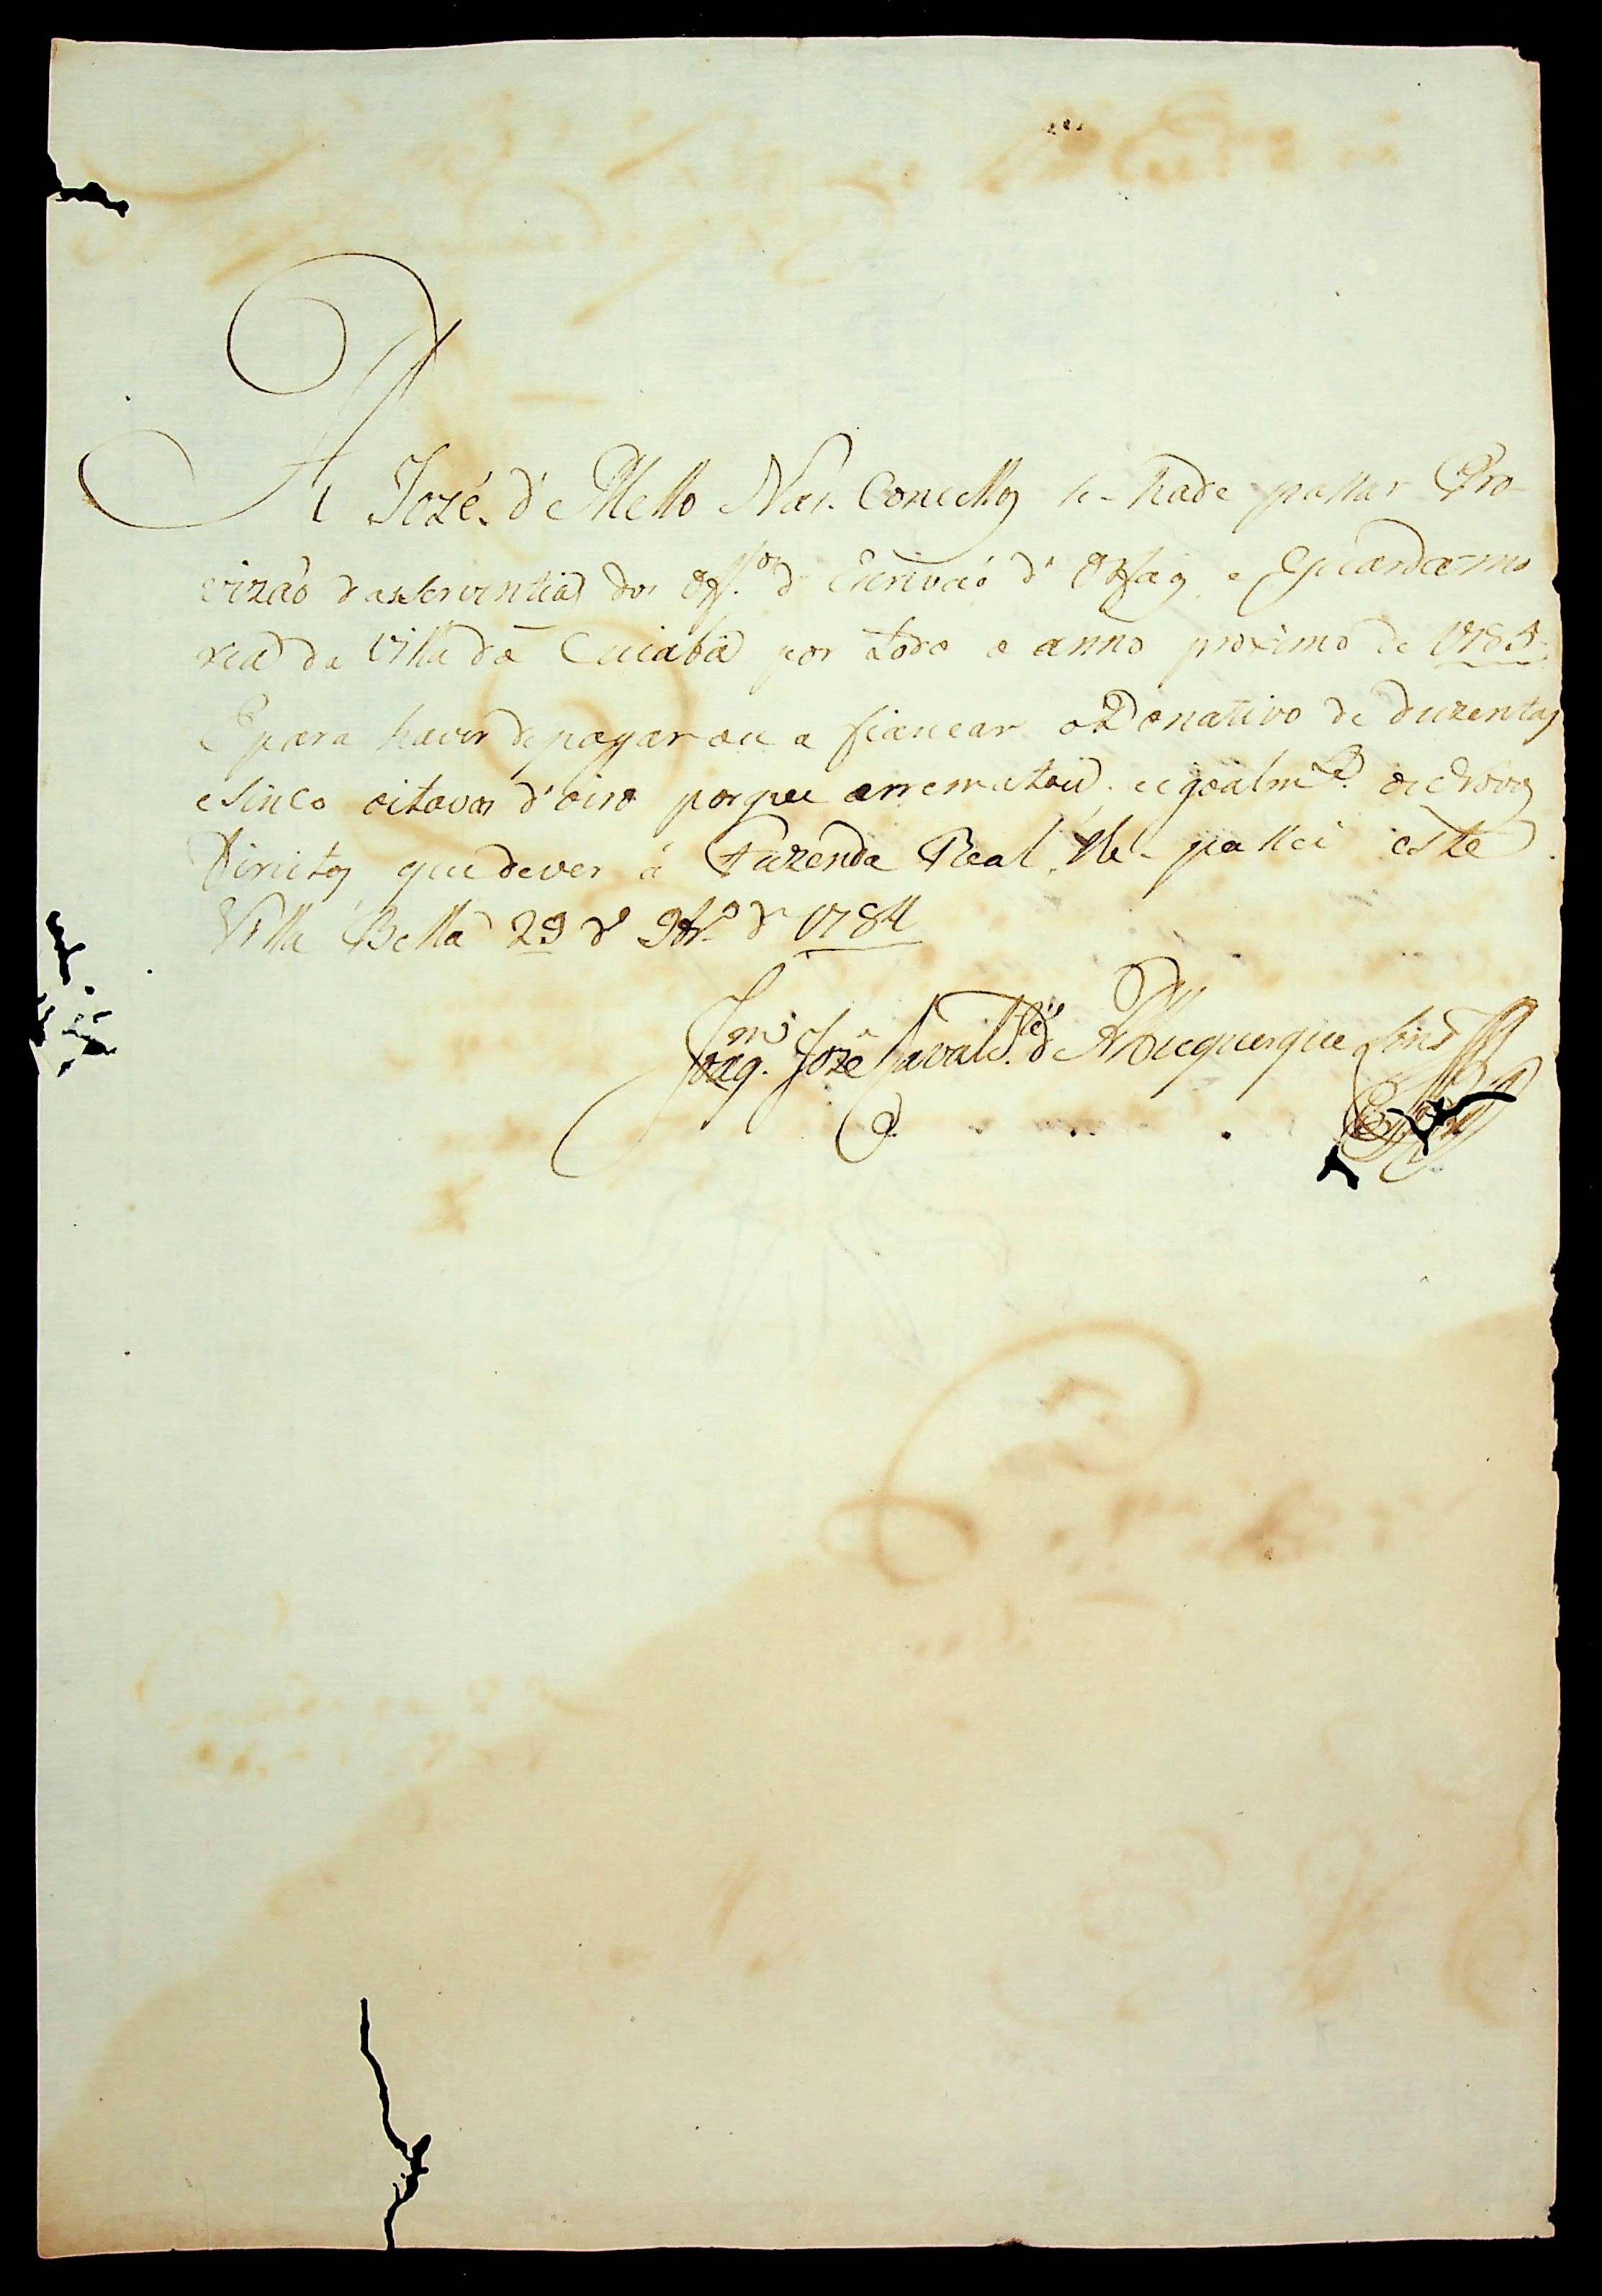 A José de Mello Vas.concellos se-hade passar Pro-
vizaõ da serventia dos Off.os de Escrivaõ d'Orfaõs, e Guardamo-
ria da Villa do Cuiabá por todo o anno proximo de 1785.
E para haver de pagar ou a fiancar o Donativo de duzentas
e sinco oitavas d'oiro porque arrematou, e igoalm.e os Novos
Direitos que dever á Fazenda Real, lhe-passei este
Villa Bella 29 de 9br.o de 1784
Joaq.m José Cavalc.te d'Albuquerque Lins